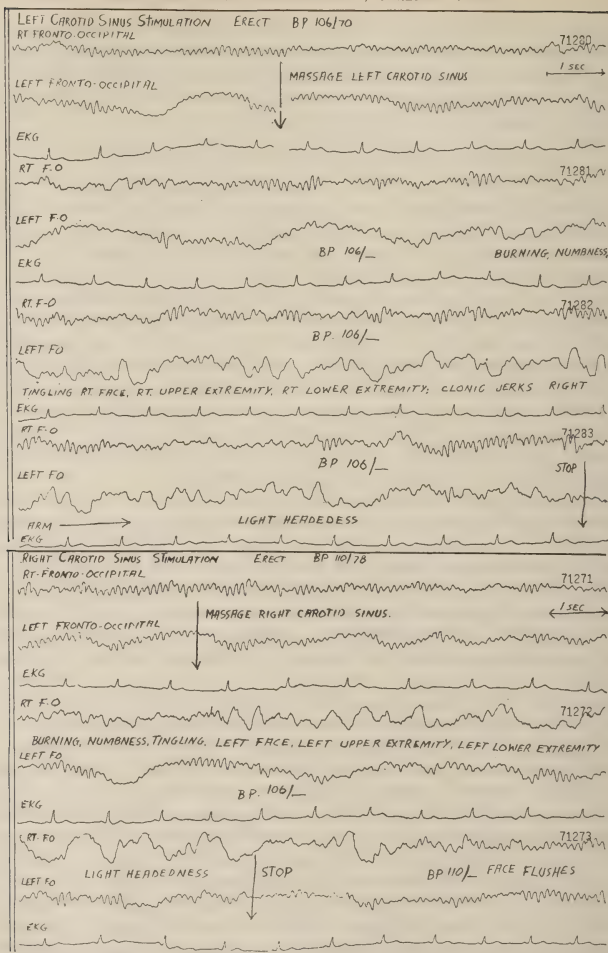 LEFT CAROTID SINUS STIMULATION ERECT BP 106/70
RT FRONTO-OCCIPITAL 71280
1 SEC
MASSAGE LEFT CAROTID SINUS
LEFT FRONTO-OCCIPITAL
EKG
RT F-O 71281
LEFT F-O
BP 106/_ BURNING, NUMBNESS,
EKG
RT. F-O 71282
BP. 106/_
LEFT FO
TINGLING RT. FACE, RT. UPPER EXTREMITY, RT LOWER EXTREMITY; CLONIC JERKS RIGHT
EKG
RT F-O 71283
BP 106/_ STOP
LEFT FO
ARM LIGHT HEADEDESS
EKG
RIGHT CAROTID SINUS STIMULATION ERECT BP 110/78
RT-FRONTO-OCCIPITAL 71271
1 SEC
MASSAGE RIGHT CAROTID SINUS.
LEFT FRONTO-OCCIPITAL
EKG
RT F.O 71272
BURNING, NUMBNESS, TINGLING, LEFT FACE, LEFT UPPER EXTREMITY, LEFT LOWER EXTREMITY
LEFT FO
B P. 106/_
EKG
RT. FO 71273
LIGHT HEADEDNESS STOP BP 110/_ FACE FLUSHES
LEFT FO
EKG